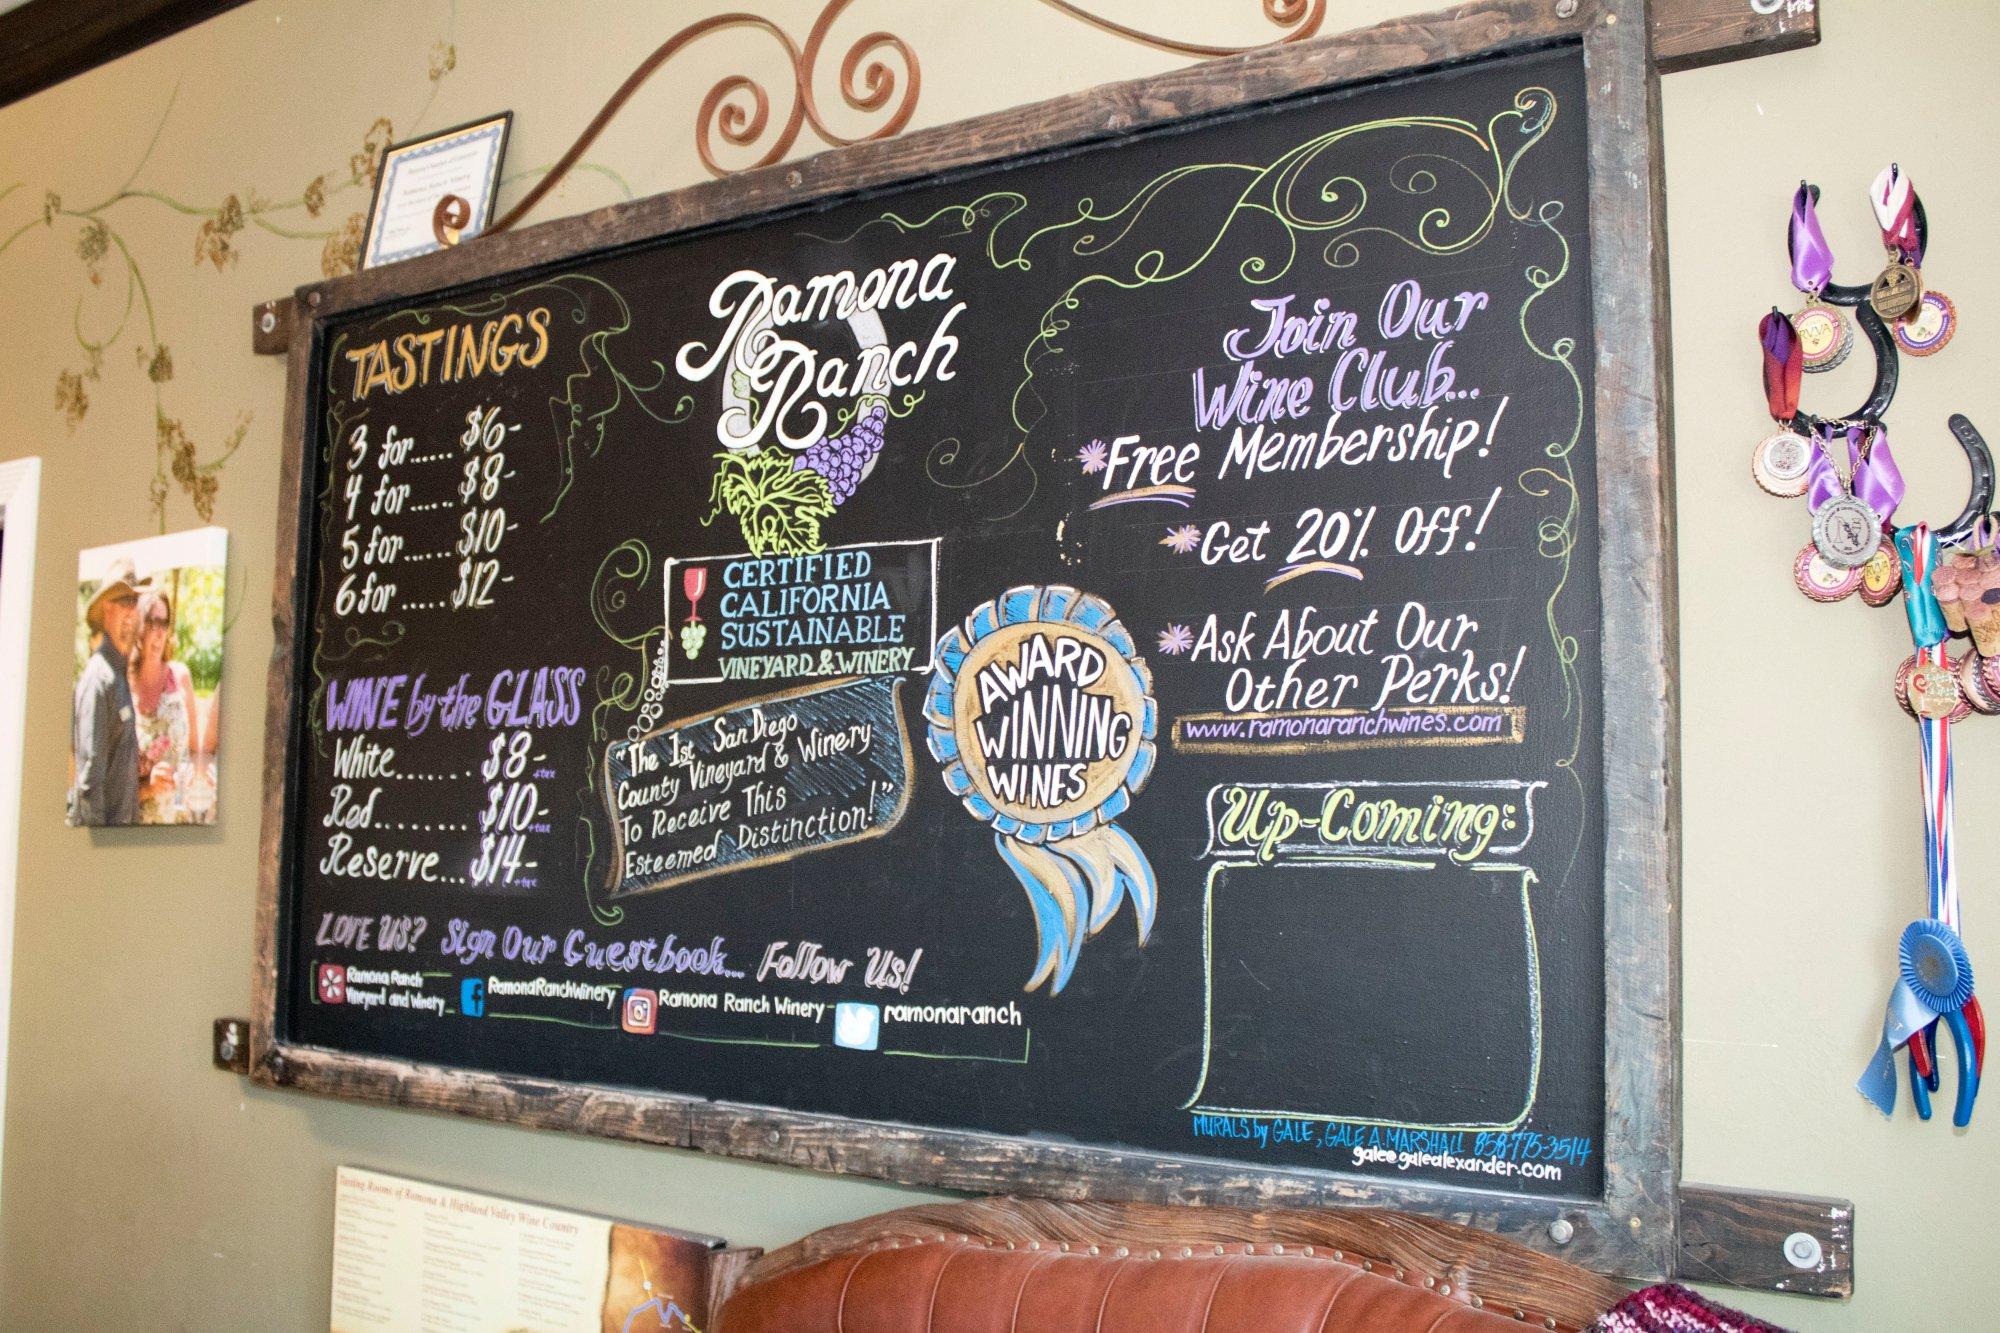 Ramona Ranch
TASTINGS
3 for...... $6-
4 for...... $8-
5 for...... $10-
6 for..... $12-
WINE by the GLASS
White....... $8- +tax
Red......... $10- +tax
Reserve... $14- +tax
Ramona
Ranch
CERTIFIED
CALIFORNIA
SUSTAINABLE
VINEYARD & WINERY
"The 1st San Diego
County Vineyard & Winery
To Receive This
Esteemed Distinction!"
AWARD
WINNING
WINES
Join Our
Wine Club...
*Free Membership!
*Get 20% Off!
*Ask About Our
Other Perks!
www.ramonaranchwines.com
Up-Coming:
LOVE US? Sign Our Guestbook... Follow Us!
Ramona Ranch
Vineyard and Winery
RamonaRanchWinery
Ramona Ranch Winery
ramonaranch
MURALS by GALE, GALE A. MARSHALL 858-775-3514
gale@galealexander.com
Tasting Rooms of Ramona & Highland Valley Wine Country
RVVA
RVVA